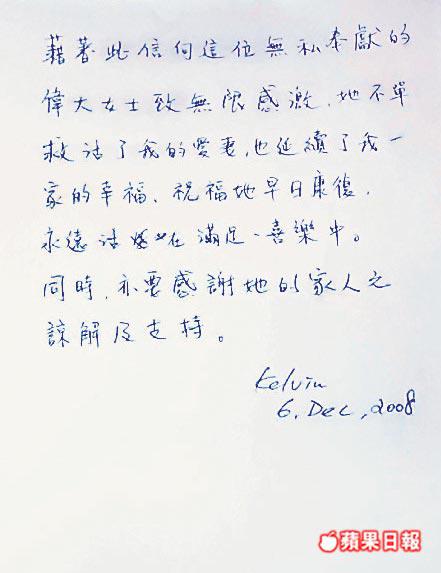 藉著此信向這位無私奉獻的
偉大女士致無限感激，她不單
救活了我的愛妻，也延續了我一
家的幸福、祝福她早日康復，
永遠活在滿足、喜樂中。
同時，亦要感謝她的家人之
諒解及支持。
Kelvin
6. Dec, 2008
蘋果日報